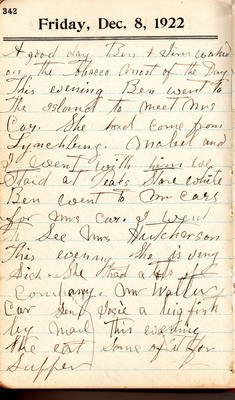 342
Friday, Dec. 8, 1922
A good day Ben & Jim worked
on the Tobacco most of the Day
This evening Ben went to
the Island to meet Mrs
Car. She had come from
Lynchburg. Mabel and
I went with him We
Staid at Store while
Ben went to Mr Cars
for Mrs Car. I went
to See Mrs Hutcherson
This evening She is very
Sick. She had a lots of
Company. Mr Walter
Car Sent Josie a big fish
by Mail This evening
We eat Some of it for
Supper